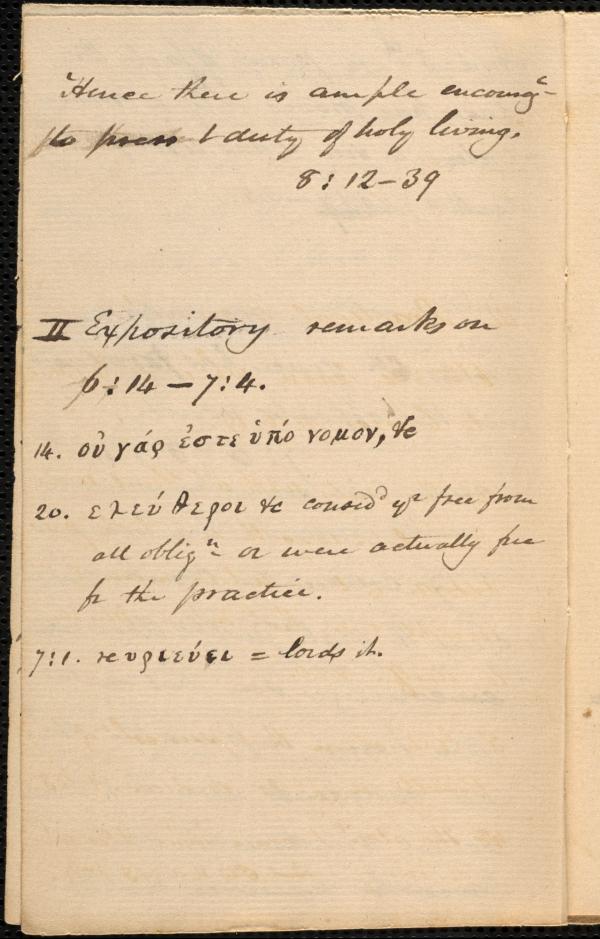 "Hence there is ample encourgᵗ-
to press t duty of holy living.
8:12–39
II Expository remarks on
6:14 – 7:4.
14. οὐ γάρ ἐστε ὑπό νομον, &c
20. ελεύθεροι &c consid^d y^r free from
all oblig^n - or were actually free
fr the practice.
7:1. κυριεύει = lords it.